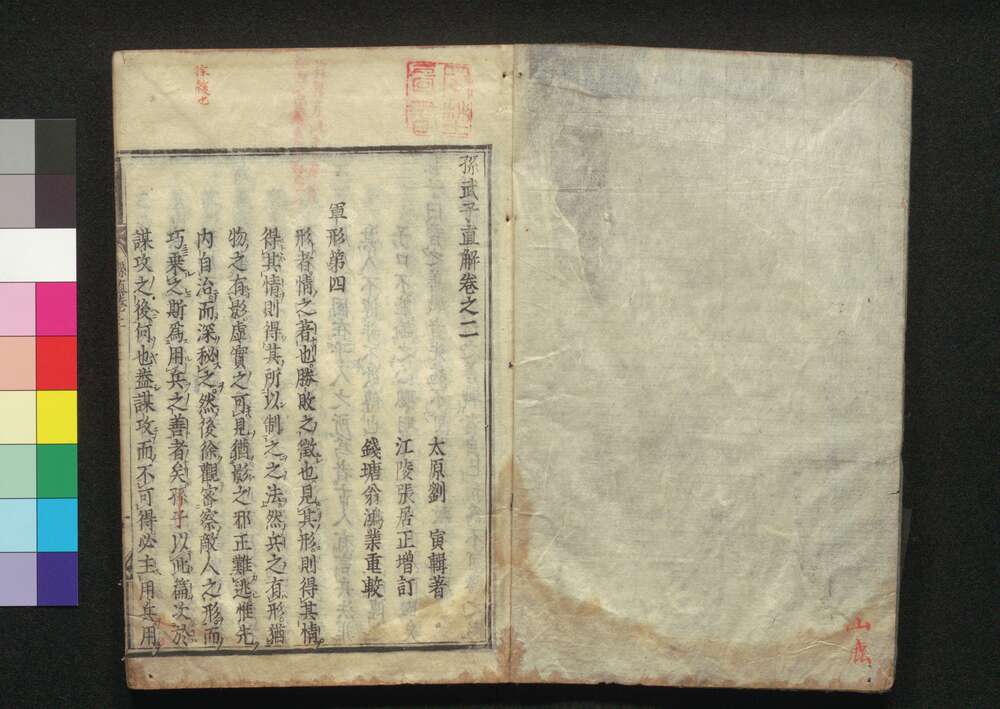 孫武子直解卷之二
太原劉　寅輯著
江陵張居正增訂
錢塘翁鴻業重較
軍形第四
形者情之著也勝敗之徵也見其形則得其情
得其情則得其所以制之之法然兵之有形猶
物之有影虛實之可見猶影之邪正難逃惟先
内自治而深秘之然後徐觀審察敵人之形而
巧乗之斯爲用兵之善者矣孫子以此篇次於
謀攻之後何也葢謀攻而不可得必主用兵用
山鹿